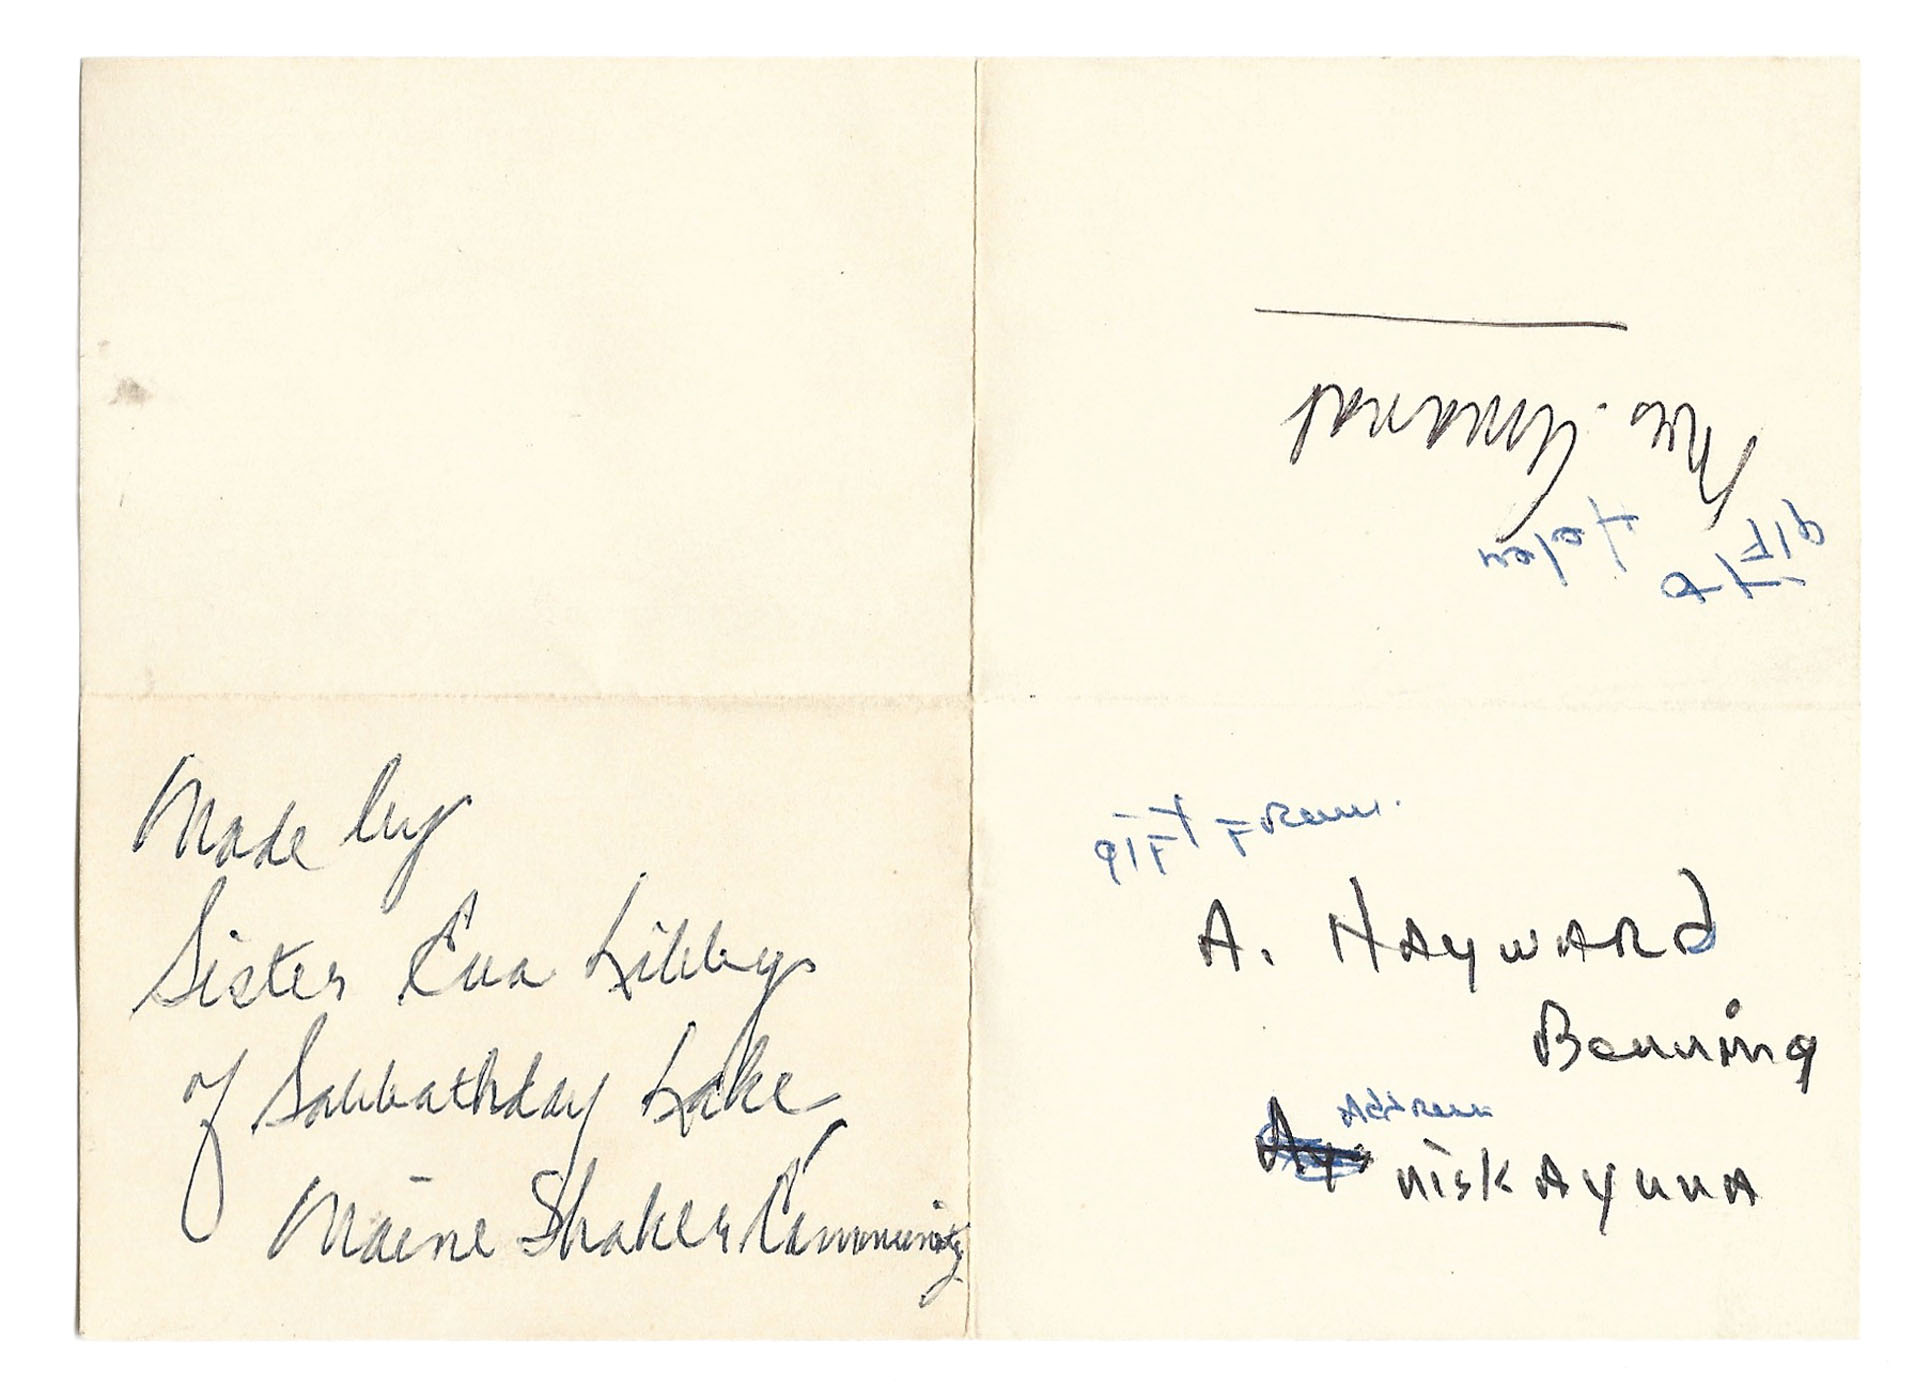 Made by
Sister Eva Libbys
of Sabbathday Lake
Maine Shaker Community
gift
to Helen
Mrs.
gift From.
A. Hayward
Benning
Address
niskayuna